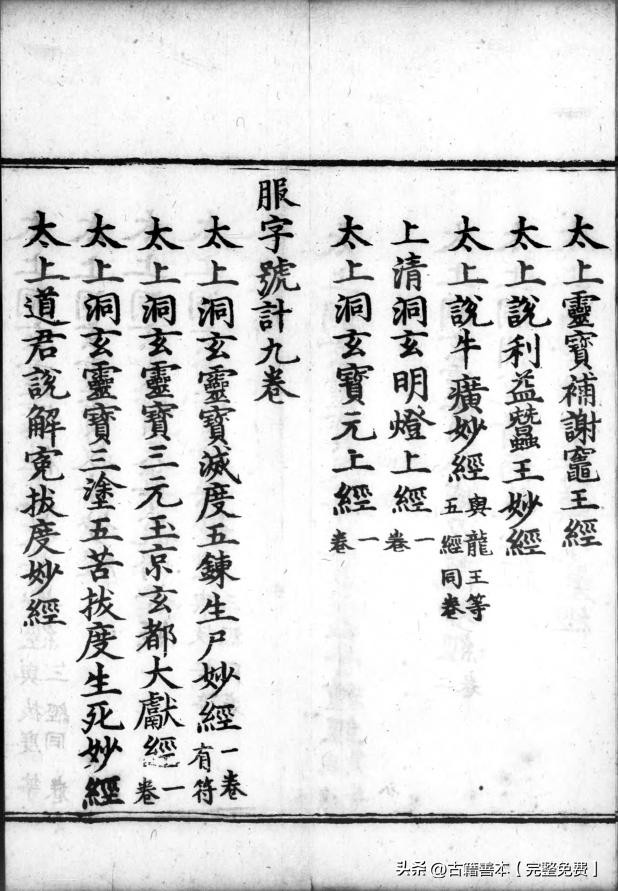 太上靈寶補謝竈王經
太上說利益蠶王妙經
太上說牛癀妙經 與龍王等五經同卷
上清洞玄明燈上經 一卷
太上洞玄寶元上經 一卷
服字號計九卷
太上洞玄靈寶滅度五鍊生尸妙經 一卷有符
太上洞玄靈寶三元玉京玄都大獻經 一卷
太上洞玄靈寶三塗五苦拔度生死妙經
太上道君說解冤拔度妙經
头条@古籍善本【完整免费】